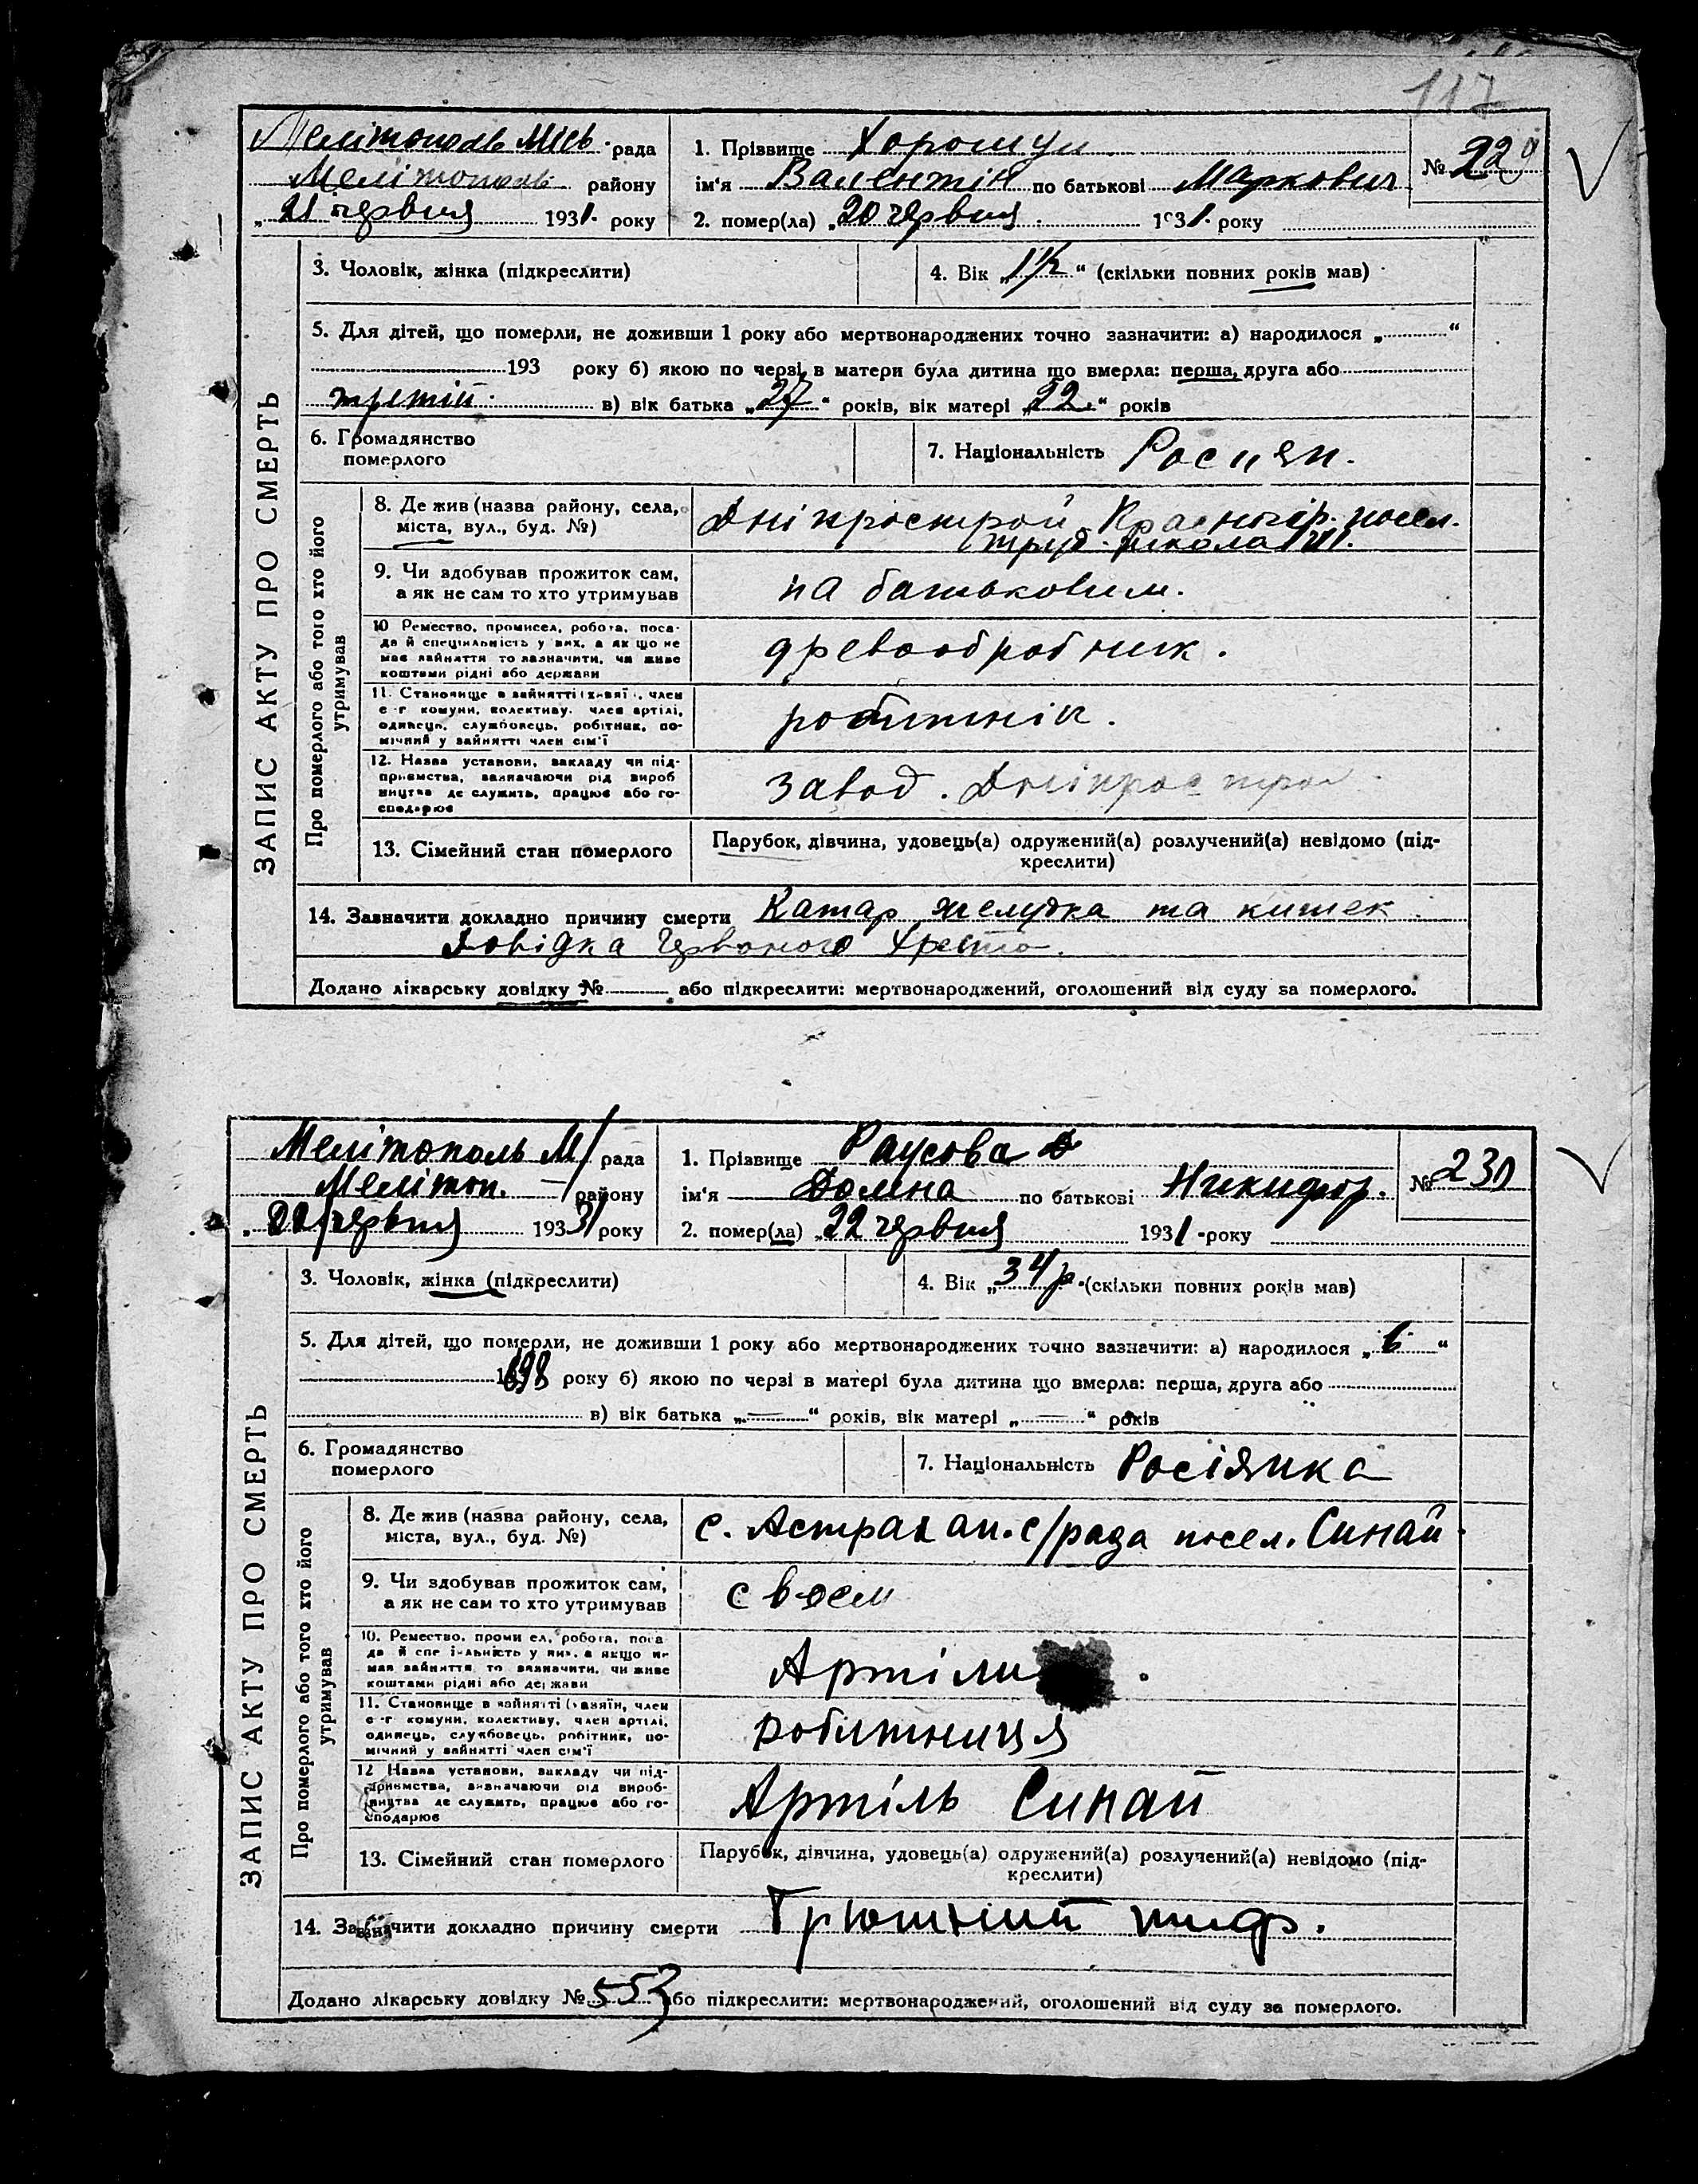 117
Мелітополь Місь. рада
1. Прізвище Хорошун
№ 229
Мелітополь району
ім'я Валентін по батькові Маркович
„21 червня 1931. року
2. помер(ла) „20 червня 1931. року
3. Чоловік, жінка (підкреслити)
4. Вік „1½“ (скільки повних років мав)
5. Для дітей, що померли, не доживши 1 року або мертвонароджених точно зазначити: а) народилося „ “
193 року б) якою по черзі в матери була дитина що вмерла: перша, друга або
третій в) вік батька „27“ років, вік матері „22“ років
6. Громадянство
померлого
7. Національність Росиян.
ЗАПИС АКТУ ПРО СМЕРТЬ
Про померлого або того хто його
утримував
8. Де жив (назва району, села,
міста, вул., буд. №)
Дніпрострой Красногір. посел.
труд. школа
9. Чи здобував прожиток сам,
а як не сам то хто утримував
на батьковим.
10 Ремество, промисел, робота, поса-
да й спеціяльність у них, а як що не
має зайняття то зазначити, чи живе
коштами рідні або держави
древообробник.
11. Становище в зайнятті (хазяїн, член
с-г комуни, колективу, член артілі,
одинець, службовець, робітник, по-
мічний у зайнятті член сім'ї
робитнік.
12. Назва установи, закладу чи під-
приємства, зазначаючи рід вироб
ництва де служить, працює або го-
сподарює
завод. Дніпрострой
13. Сімейний стан померлого
Парубок, дівчина, удовець(а) одружений(а) розлучений(а) невідомо (під-
креслити)
14. Зазначити докладно причину смерти Катар желудка та кишек
Довідка Червоного Хреста.
Додано лікарську довідку № або підкреслити: мертвонароджений, оголошений від суду за померлого.
Мелітополь М/ рада
1. Прізвище Раусова
№ 230
Мелітоп. району
ім'я Домна по батькові Никифор.
„22 червня 1931 року
2. помер(ла) „22 червня 1931 -року
3. Чоловік, жінка (підкреслити)
4. Вік „34 р. (скільки повних років мав)
5. Для дітей, що померли, не доживши 1 року або мертвонароджених точно зазначити: а) народилося „в“
1898 року б) якою по черзі в матері була дитина що вмерла: перша, друга або
в) вік батька „—“ років, вік матері „—“ років
6. Громадянство
померлого
7. Національність Росіянка
ЗАПИС АКТУ ПРО СМЕРТЬ
Про померлого або того хто його
утримував
8. Де жив (назва району, села,
міста, вул., буд. №)
с. Астрахан. с/рада посел. Синай
9. Чи здобував прожиток сам,
а як не сам то хто утримував
своєм
10. Ремество, промисел, робота, поса
да й спеціяльність у них, а якщо не
має зайняття то зазначити, чи живе
коштами рідні або держави
Артіли
11. Становище в зайнятті (хазяїн, член
с-г комуни, колективу, член артілі,
одинець, службовець, робітник, по-
мічний у зайнятті член сім'ї
робитниця
12 Назва установи, закладу чи під-
приємства, зазначаючи рід вироб-
ництва де служить, працює або го-
сподарює
Артіль Синай
13. Сімейний стан померлого
Парубок, дівчина, удовець(а) одружений(а) розлучений(а) невідомо (під-
креслити)
14. Зазначити докладно причину смерти Грюшний тиф.
Додано лікарську довідку № 553 або підкреслити: мертвонароджений, оголошений від суду за померлого.